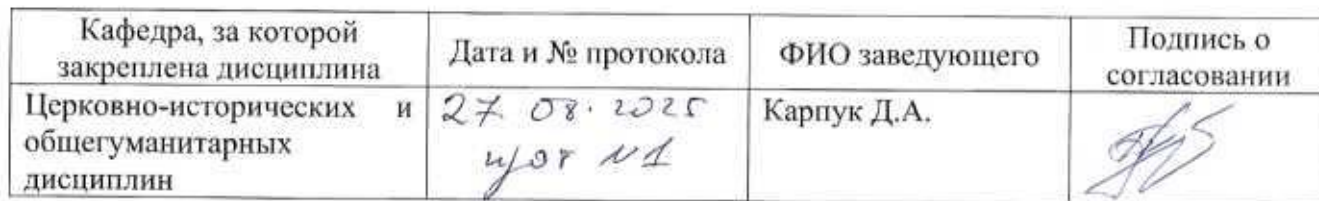 Кафедра, за которой
закреплена дисциплина
Дата и № протокола
ФИО заведующего
Подпись о
согласовании
Церковно-исторических и
общегуманитарных
дисциплин
27. 08. 2025
прот №1
Карпук Д.А.